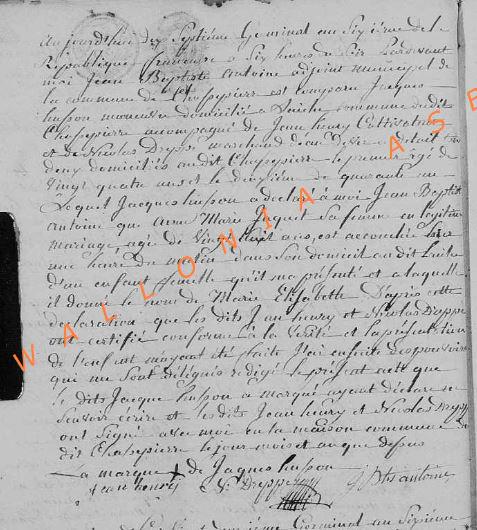 Aujourd'hui dix Septième Germinal an Sixième de la
République française a Six heures du Soir Pardevant
moi Jean Baptiste Antoine adjoint municipal de
la commune de Chassepierre est comparu Jacques
husson domicilié a Laiche commune dudit
Chassepierre accompagné de Jean henry Cultivateur
et de Nicolas marchand
deux domiciliés audit Chassepierre le premier agé de
Vingt quatre ans et le deuxième de quarante un
Lequel Jacques husson a déclaré à moi Jean Baptiste
antoine que anne Marie Sa femme en légitime
mariage, agée de Vingt huit ans, est accouchée
une heure du matin dans Son domicil audit Laiche
d'un enfant femelle qu'il m'a présenté et a laquelle
il donné le nom de Marie Elisabette D'après cette
déclaration que les dits Jean henry et Nicolas Dreppe
ont certifié conforme à la Vérité et la présentation
de l'enfant m'ayant été faite J'ai ensuite des pouvoirs
qui me Sont délégués rédigé le présent acte que
le dits Jacque husson a marqué ayant déclaré ne
Savoir écrire et les dits Jean henry et Nicolas
ont Signé avec moi en la maison commune du
dit Chassepierre le jour mois et an que dessus
La marque + de Jaques husson
Jean henry N: Dreppe J Bts antoine
Germinal an Sixième
WALLONIA ASB